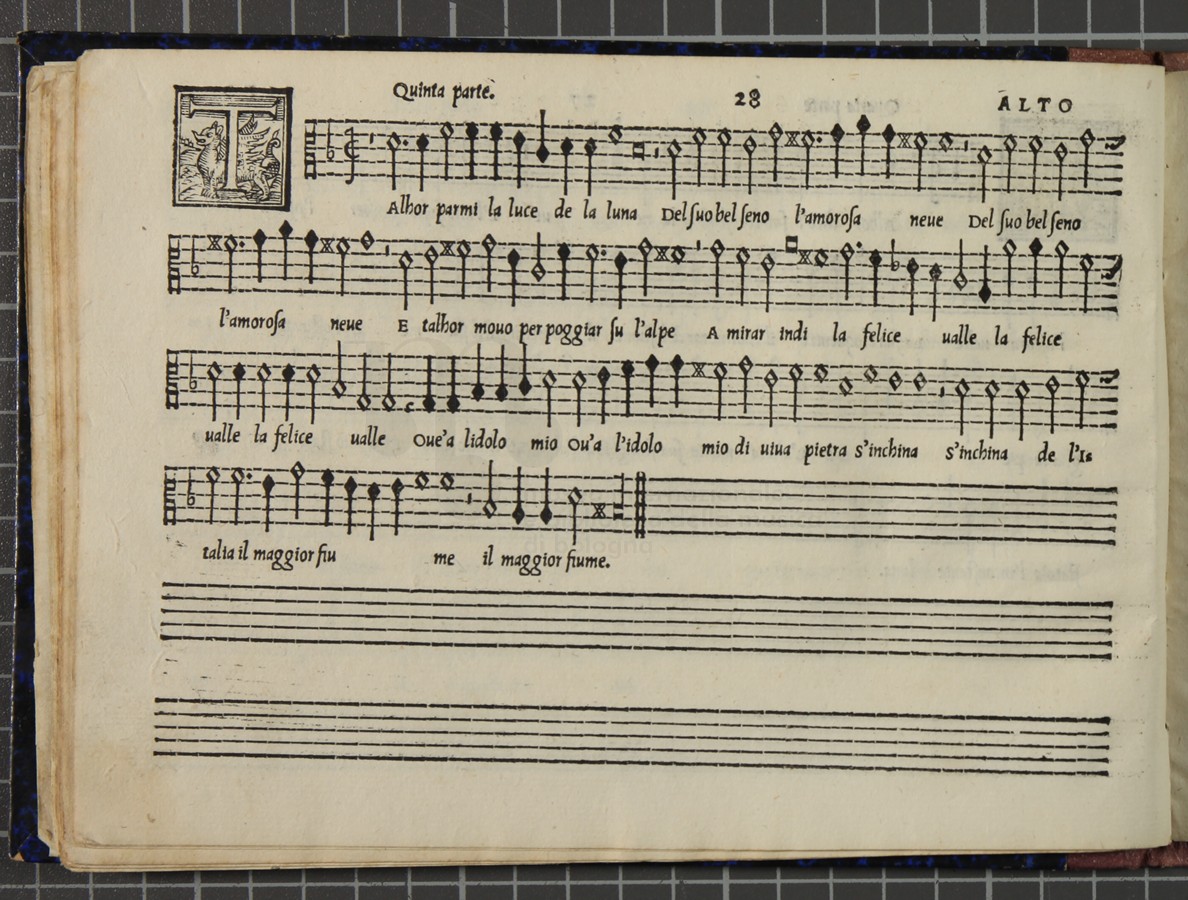 Quinta parte. 28 ALTO
TAlhor parmi la luce de la luna Del suo bel seno l'amorosa neue Del suo bel seno
l'amorosa neue E talhor mouo per poggiar su l'alpe A mirar indi la felice ualle la felice
ualle la felice ualle Oue'a lidolo mio Ou'a l'idolo mio di uiua pietra s'inchina s'inchina de l'Is
talia il maggior fiu me il maggior fiume.
di bologna